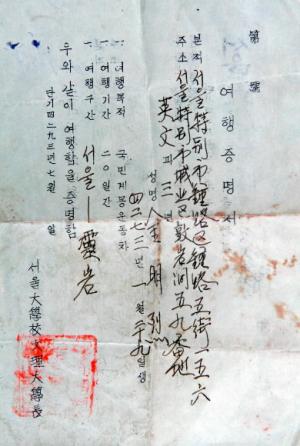 第 號
여행증명서
본적 서울特別市鍾路区鍾路五街一五六
주소 서울特别市城北区敦岩洞五九番地
英文과 三년
성명 金明烈
四二七三年 一월 二十九일생
一. 여행목적 국민계몽운동차
一. 여행기간 二〇일간
一. 여행구산 서울—靈岩
우와같이 여행함을 증명함
단기四二九三년七월 일
서울大學校文理大學長